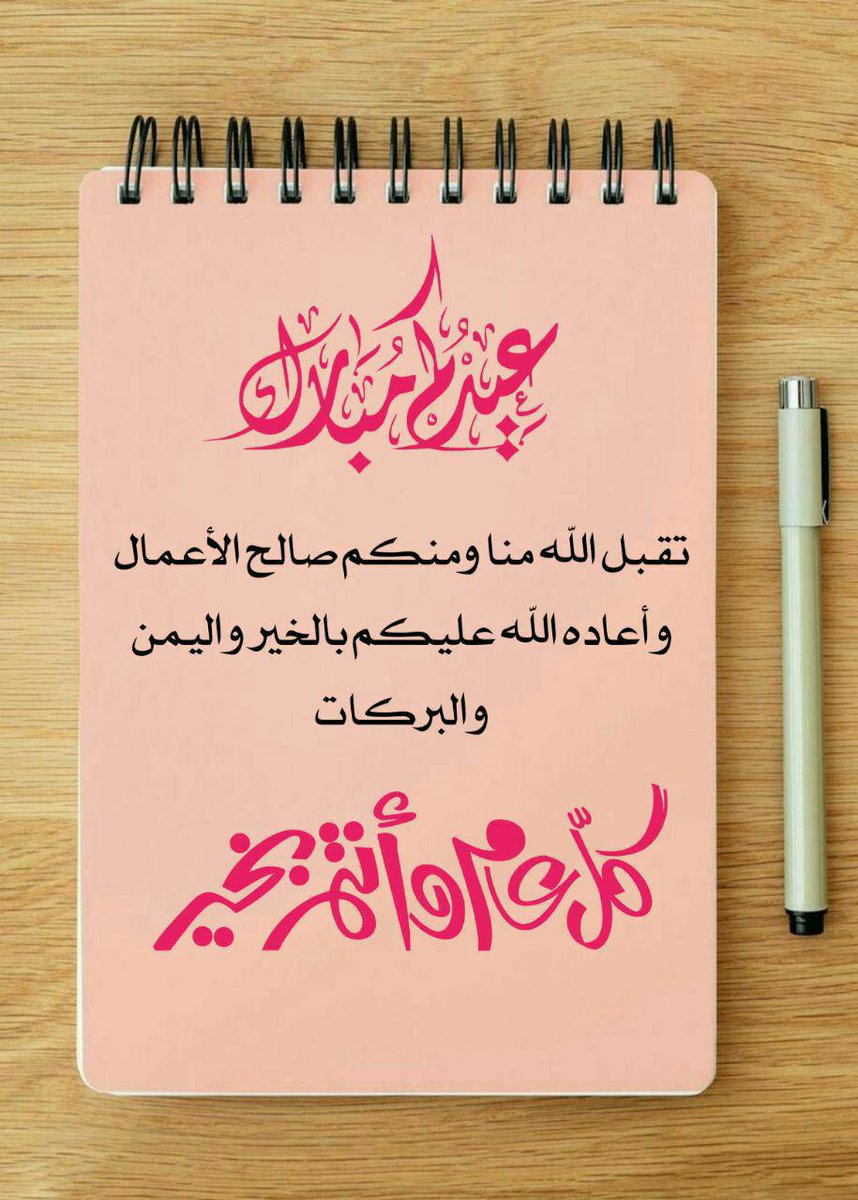 عِيدُكُم مُبَارَك
تقبل الله منا ومنكم صالح الأعمال
وأعاده الله عليكم بالخير واليمن
والبركات
كلّ عام وأنتم بخير